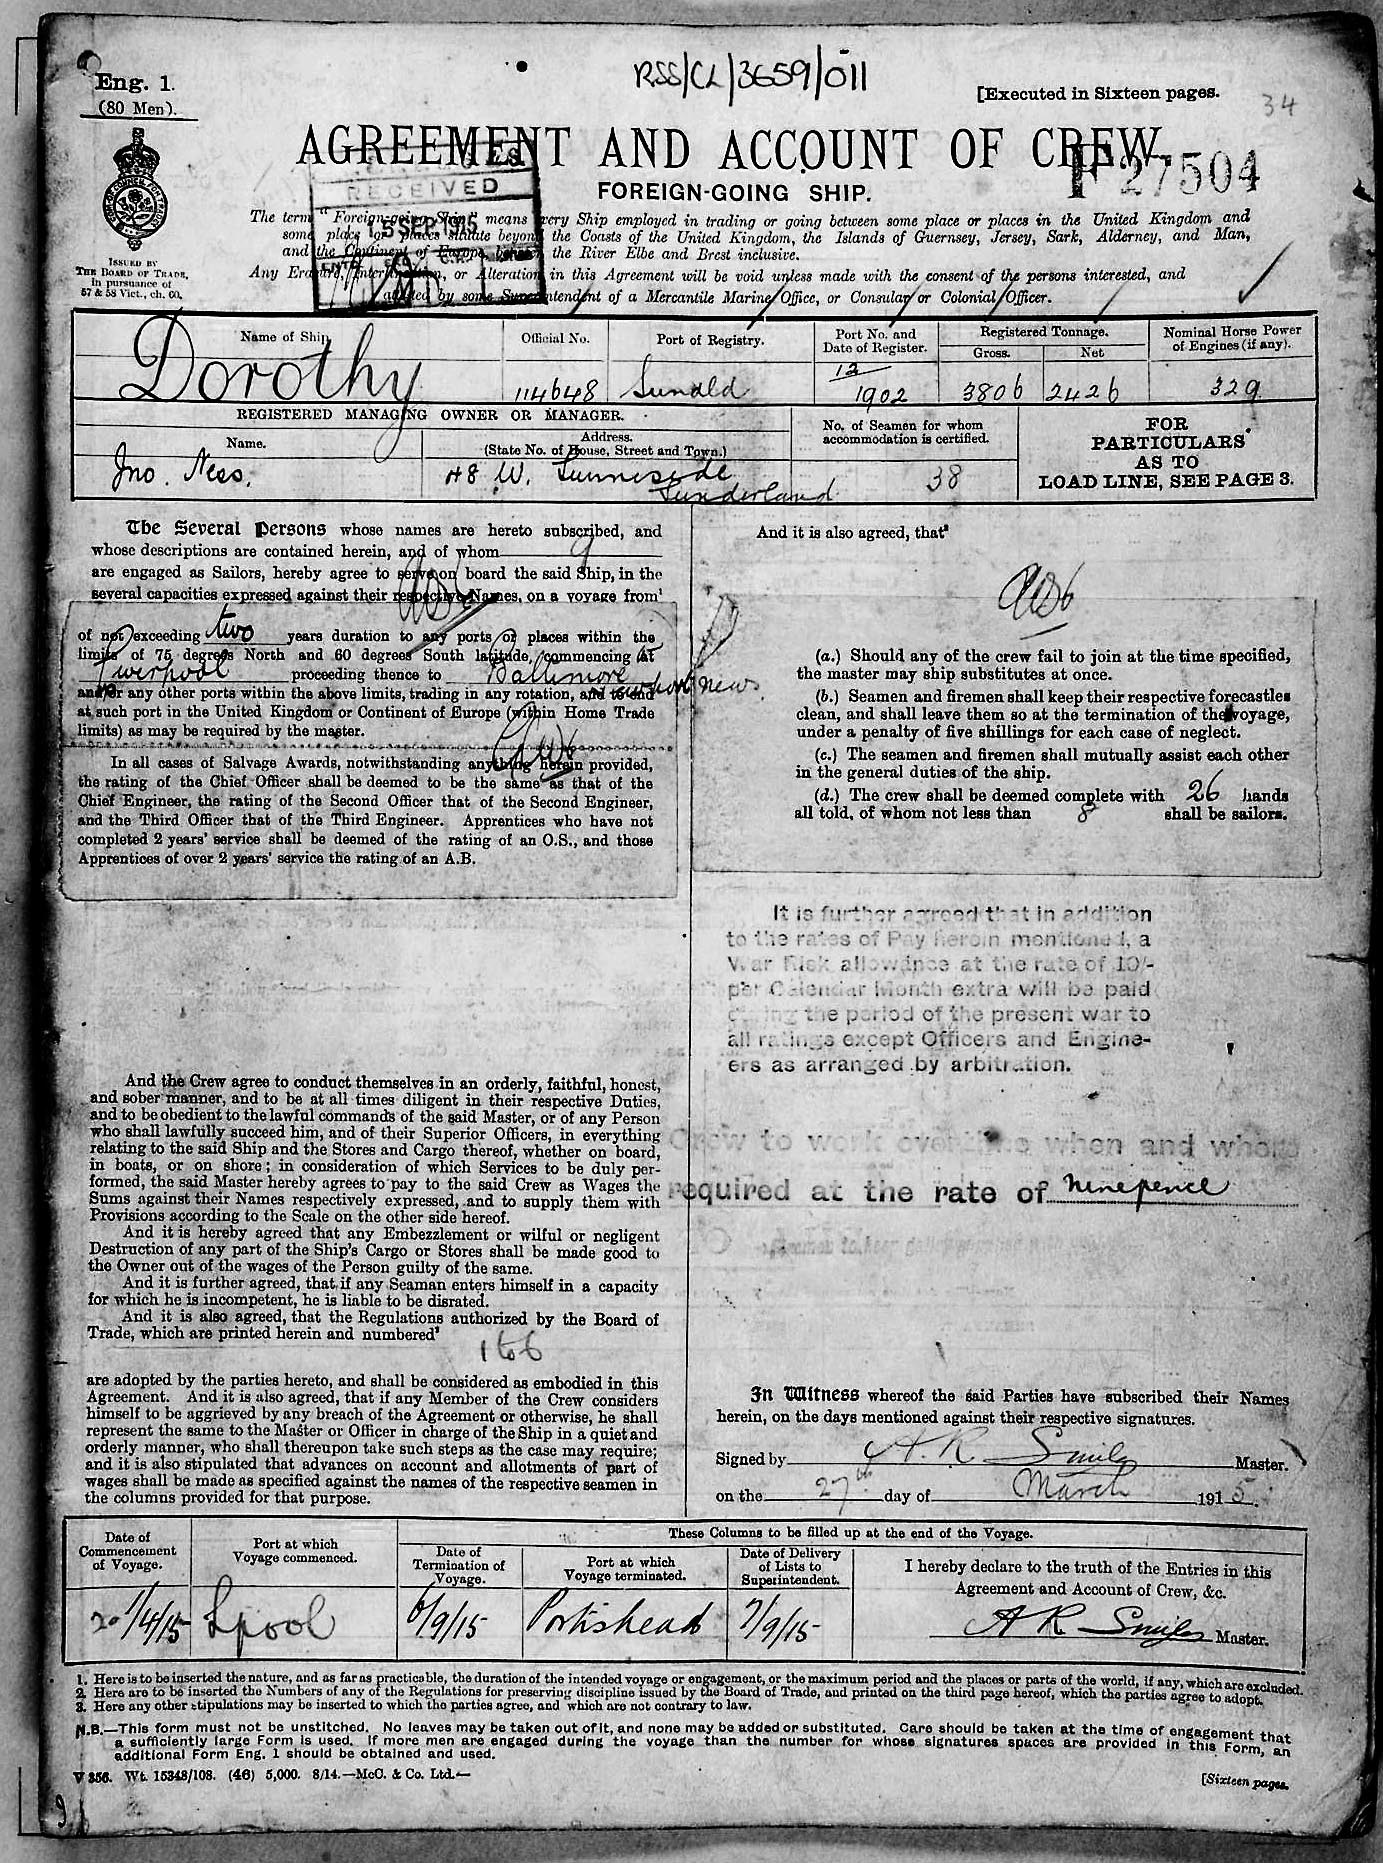 RSS/CL/3659/011
Eng. 1.
(80 Men).
[Executed in Sixteen pages.
34
AGREEMENT AND ACCOUNT OF CREW.
F 27504
FOREIGN-GOING SHIP.
RECEIVED
15 SEP. 1915
ISSUED BY
THE BOARD OF TRADE,
in pursuance of
57 & 58 Vict., ch. 60.
The term "Foreign-going Ship" means every Ship employed in trading or going between some place or places in the United Kingdom and
some place or places situate beyond the Coasts of the United Kingdom, the Islands of Guernsey, Jersey, Sark, Alderney, and Man,
and the Continent of Europe, between the River Elbe and Brest inclusive.
Any Erasure, Interlineation, or Alteration in this Agreement will be void unless made with the consent of the persons interested, and
attested by some Superintendent of a Mercantile Marine Office, or Consular or Colonial Officer.
Name of Ship.
Official No.
Port of Registry.
Port No. and
Date of Register.
Registered Tonnage.
Gross.
Net
Nominal Horse Power
of Engines (if any).
Dorothy
114648
Sunald
12
1902
3806
2426
329
REGISTERED MANAGING OWNER OR MANAGER.
Name.
Address.
(State No. of House, Street and Town.)
No. of Seamen for whom
accommodation is certified.
FOR
PARTICULARS
AS TO
LOAD LINE, SEE PAGE 3.
Jno. Ness.
48 W. Sunniside
Sunderland
38
The Several Persons whose names are hereto subscribed, and
whose descriptions are contained herein, and of whom 9
are engaged as Sailors, hereby agree to serve on board the said Ship, in the
several capacities expressed against their respective Names, on a voyage from¹
of not exceeding two years duration to any ports or places within the
limits of 75 degrees North and 60 degrees South latitude, commencing at
Liverpool proceeding thence to Baltimore
newport news
and/or any other ports within the above limits, trading in any rotation, and to end
at such port in the United Kingdom or Continent of Europe (within Home Trade
limits) as may be required by the master.
In all cases of Salvage Awards, notwithstanding anything herein provided,
the rating of the Chief Officer shall be deemed to be the same as that of the
Chief Engineer, the rating of the Second Officer that of the Second Engineer,
and the Third Officer that of the Third Engineer. Apprentices who have not
completed 2 years' service shall be deemed of the rating of an O.S., and those
Apprentices of over 2 years' service the rating of an A.B.
And the Crew agree to conduct themselves in an orderly, faithful, honest,
and sober manner, and to be at all times diligent in their respective Duties,
and to be obedient to the lawful commands of the said Master, or of any Person
who shall lawfully succeed him, and of their Superior Officers, in everything
relating to the said Ship and the Stores and Cargo thereof, whether on board,
in boats, or on shore; in consideration of which Services to be duly per-
formed, the said Master hereby agrees to pay to the said Crew as Wages the
Sums against their Names respectively expressed, and to supply them with
Provisions according to the Scale on the other side hereof.
And it is hereby agreed that any Embezzlement or wilful or negligent
Destruction of any part of the Ship's Cargo or Stores shall be made good to
the Owner out of the wages of the Person guilty of the same.
And it is further agreed, that if any Seaman enters himself in a capacity
for which he is incompetent, he is liable to be disrated.
And it is also agreed, that the Regulations authorized by the Board of
Trade, which are printed herein and numbered²
1 to 6
are adopted by the parties hereto, and shall be considered as embodied in this
Agreement. And it is also agreed, that if any Member of the Crew considers
himself to be aggrieved by any breach of the Agreement or otherwise, he shall
represent the same to the Master or Officer in charge of the Ship in a quiet and
orderly manner, who shall thereupon take such steps as the case may require;
and it is also stipulated that advances on account and allotments of part of
wages shall be made as specified against the names of the respective seamen in
the columns provided for that purpose.
And it is also agreed, that³
(a.) Should any of the crew fail to join at the time specified,
the master may ship substitutes at once.
(b.) Seamen and firemen shall keep their respective forecastles
clean, and shall leave them so at the termination of the voyage,
under a penalty of five shillings for each case of neglect.
(c.) The seamen and firemen shall mutually assist each other
in the general duties of the ship.
(d.) The crew shall be deemed complete with 26 hands
all told, of whom not less than 8 shall be sailors.
It is further agreed that in addition
to the rates of Pay herein mentioned, a
War Risk allowance at the rate of 10/-
per Calendar Month extra will be paid
during the period of the present war to
all ratings except Officers and Engine-
ers as arranged by arbitration.
Crew to work overtime when and where
required at the rate of ninepence
In Witness whereof the said Parties have subscribed their Names
herein, on the days mentioned against their respective signatures.
Signed by A. R. Smiles Master.
on the 27th day of March 1915.
Date of
Commencement
of Voyage.
Port at which
Voyage commenced.
These Columns to be filled up at the end of the Voyage.
Date of
Termination of
Voyage.
Port at which
Voyage terminated.
Date of Delivery
of Lists to
Superintendent.
I hereby declare to the truth of the Entries in this
Agreement and Account of Crew, &c.
1/4/15
Lpool
6/9/15
Portishead
7/9/15
A R Smiles Master.
1. Here is to be inserted the nature, and as far as practicable, the duration of the intended voyage or engagement, or the maximum period and the places or parts of the world, if any, which are excluded.
2. Here are to be inserted the Numbers of any of the Regulations for preserving discipline issued by the Board of Trade, and printed on the third page hereof, which the parties agree to adopt.
3. Here any other stipulations may be inserted to which the parties agree, and which are not contrary to law.
N.B.—This form must not be unstitched. No leaves may be taken out of it, and none may be added or substituted. Care should be taken at the time of engagement that
a sufficiently large Form is used. If more men are engaged during the voyage than the number for whose signatures spaces are provided in this Form, an
additional Form Eng. 1 should be obtained and used.
V 356. Wt. 15348/108. (46) 5,000. 8/14.—McC. & Co. Ltd.—
[Sixteen pages.
9